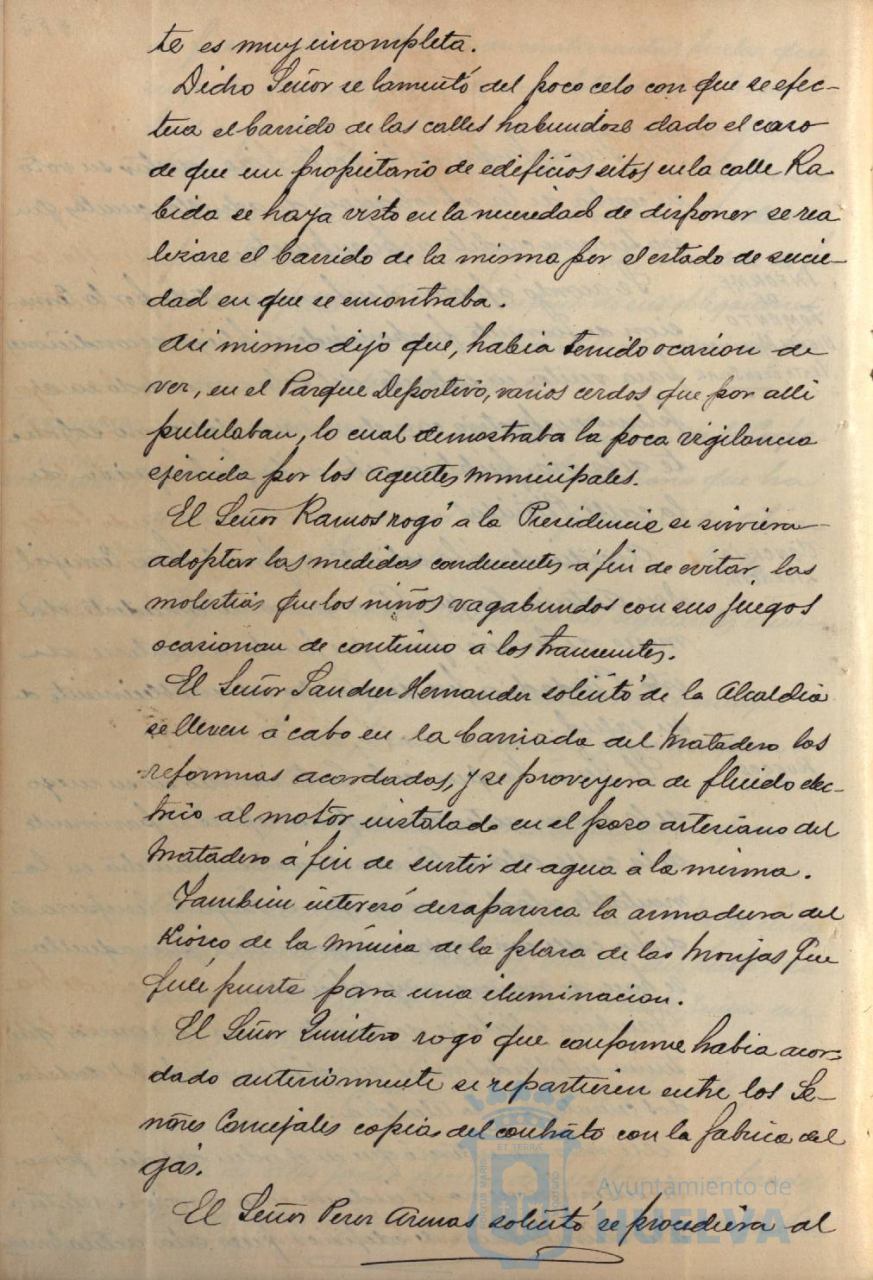 te es muy incompleta.
Dicho Señor se lamentó del poco celo con que se efec-
tua el barrido de las calles habiendose dado el caso
de que un propietario de edificios sitos en la calle Ra
bida se haya visto en la necesidad de disponer se rea
lizare el barrido de la misma por el estado de sucie-
dad en que se encontraba.
Asi mismo dijo que, habia tenido ocasion de
ver, en el Parque Deportivo, varios cerdos que por alli
pululaban, lo cual demostraba la poca vigilancia
ejercida por los agentes municipales.
El Señor Ramos rogó a la Presidencia se sirviera
adoptar las medidas conducentes á fin de evitar las
molestias que los niños vagabundos con sus juegos
ocasionan de continuo á los transeuntes.
El Señor Sanchez Hernandez solicitó de la Alcaldia
se lleven á cabo en la barriada del Matadero las
reformas acordadas, y se proveyera de fluido elec-
trico al motor instalado en el pozo artesiano del
Matadero á fin de surtir de agua á la misma.
Tambien interesó desaparezca la armadura del
Kiosco de la Música de la plaza de las Monjas que
fué puesta para una iluminacion.
El Señor Quintero rogó que conforme habia acor-
dado anteriormente se repartiesen entre los Se-
ñores Concejales copias del contrato con la fabrica del
gas.
El Señor Perez Armas solicitó se procediera al
Ayuntamiento de
HUELVA